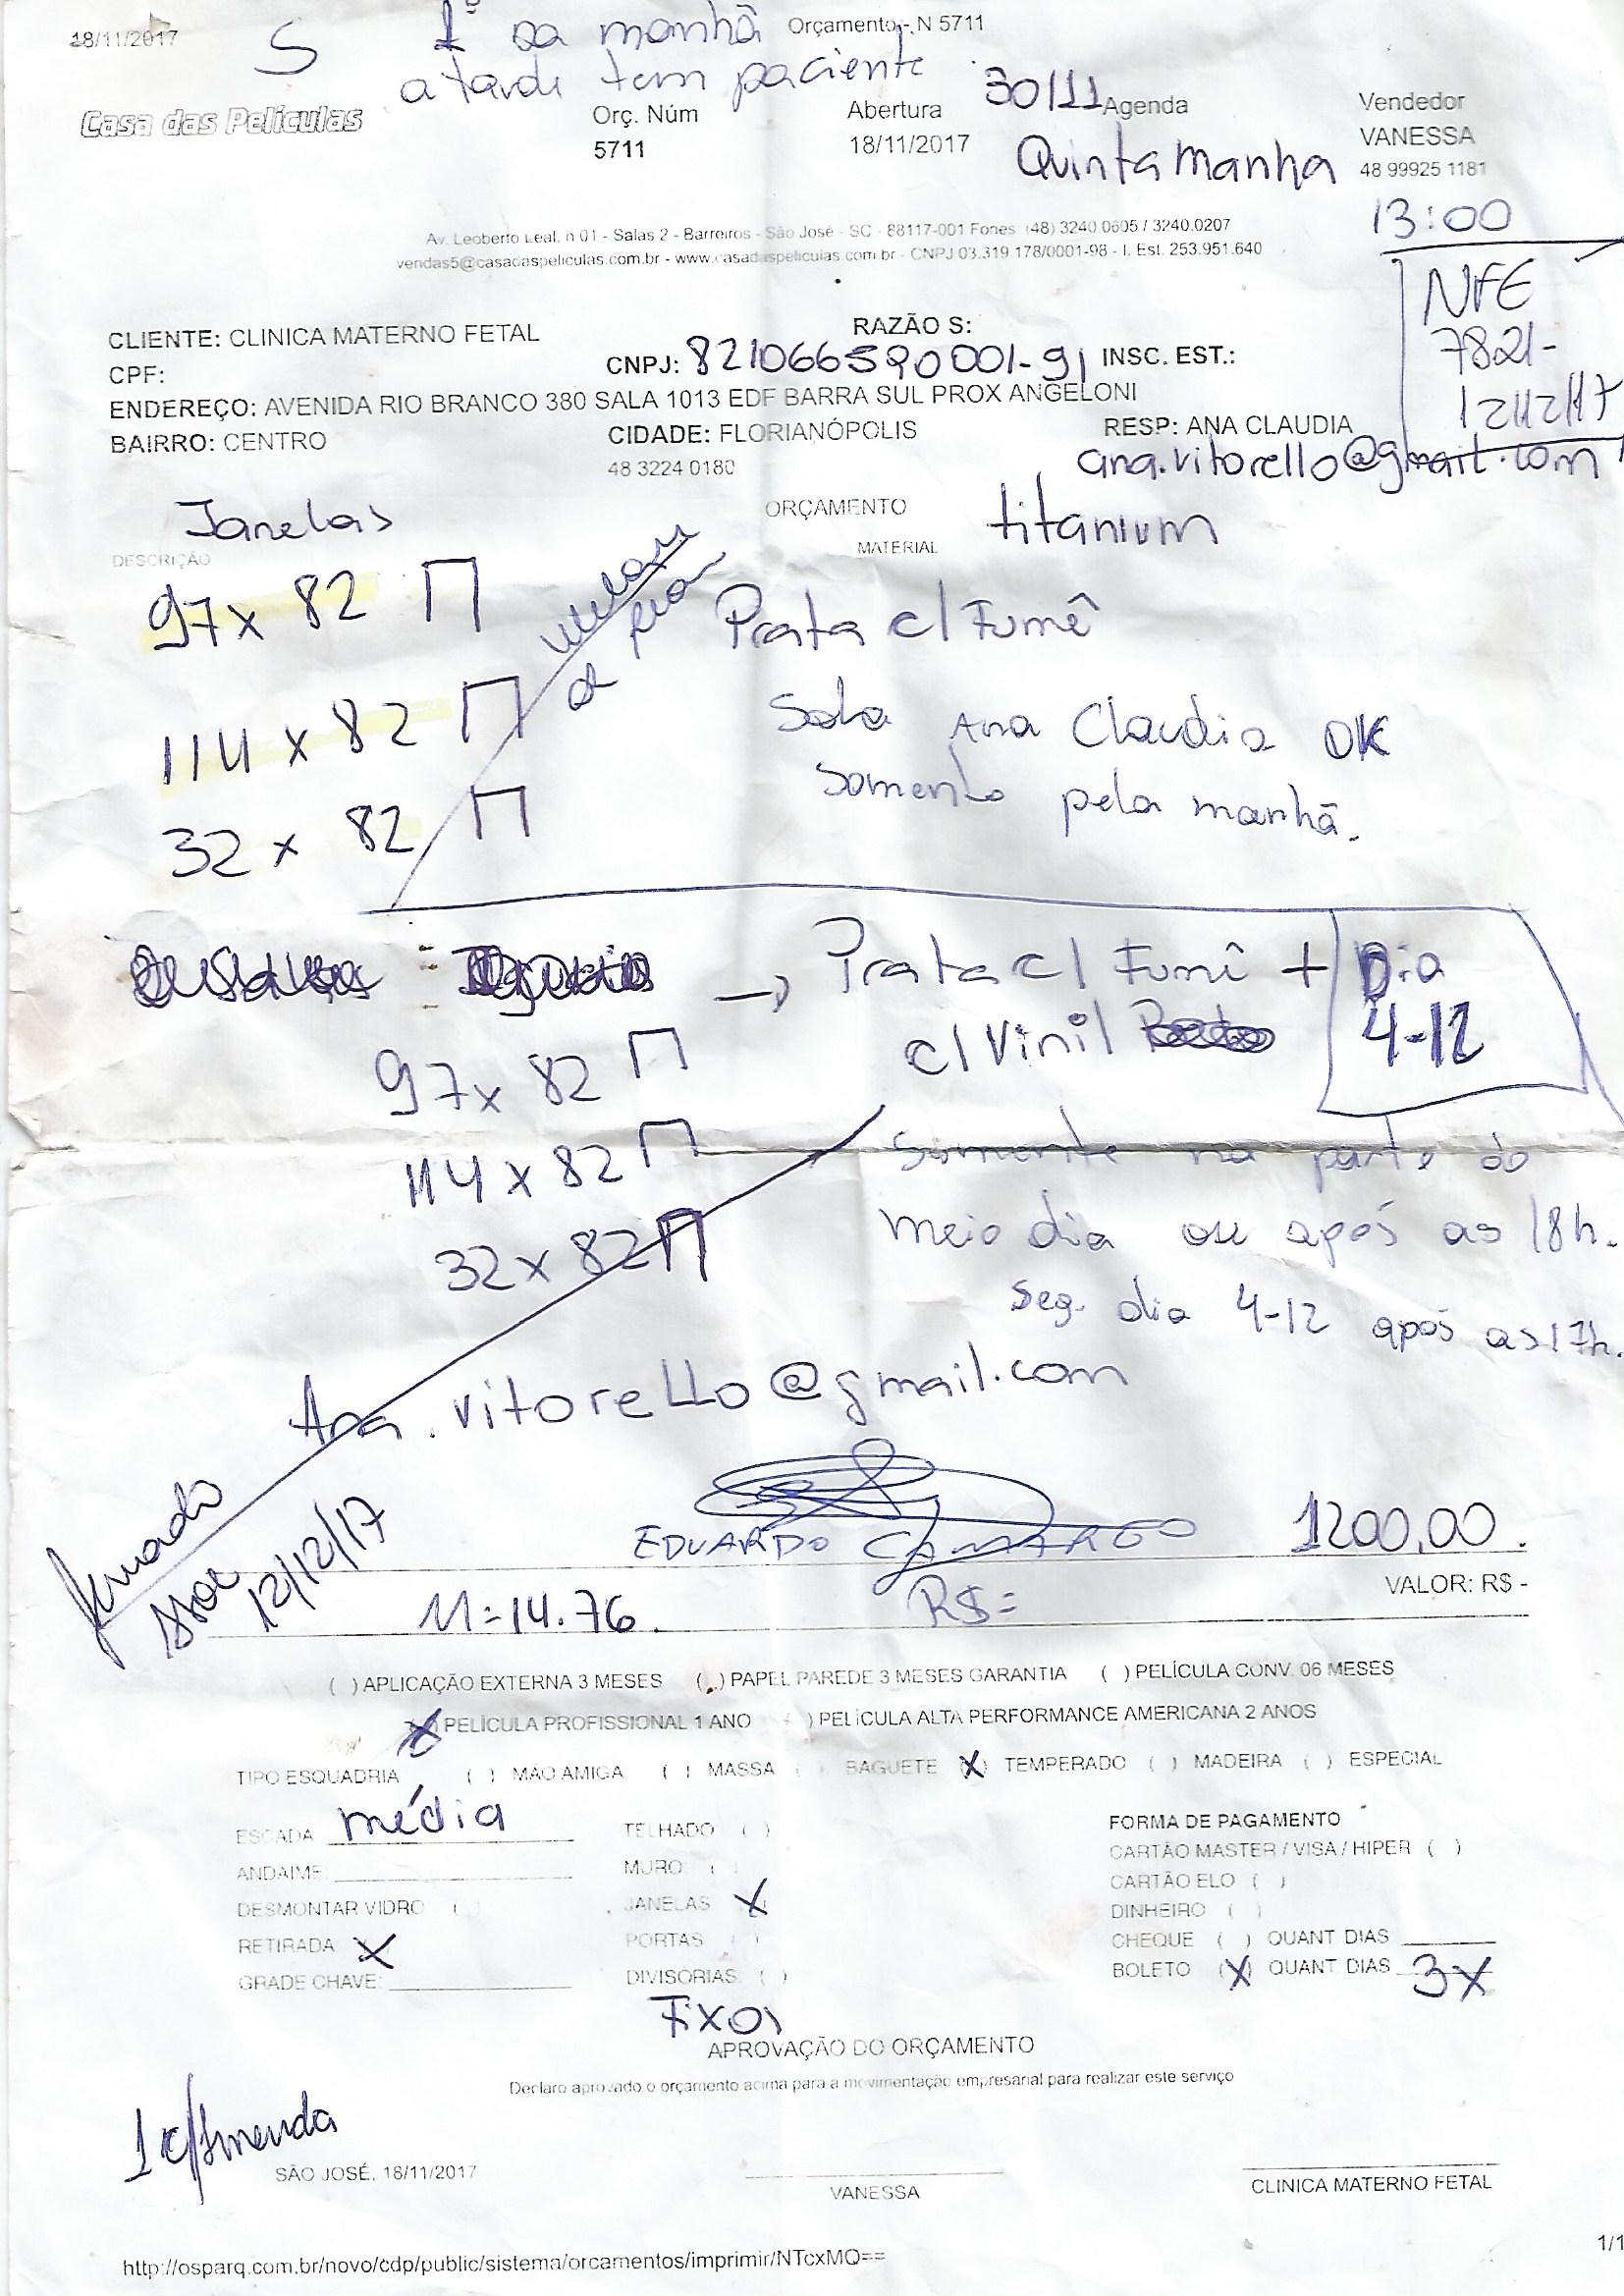 18/11/2017 Orçamento - N 5711
S 1º da manhã
a tarde tem paciente
Casa das Películas
Orç. Núm
5711
Abertura
18/11/2017
30/11 Agenda
Quinta Manhã
Vendedor
VANESSA
48 99925 1181
13:00
Av. Leoberto Leal, n 01 - Salas 2 - Barreiros - São José - SC - 88117-001 Fones (48) 3240.0605 / 3240.0207
vendas5@casadaspeliculas.com.br - www.casadaspeliculas.com.br - CNPJ 03.319.178/0001-98 - I. Est. 253.951.640
NFE
7821-
12/12/17
CLIENTE: CLINICA MATERNO FETAL RAZÃO S:
CPF: CNPJ: 821066590001-91 INSC. EST.:
ENDEREÇO: AVENIDA RIO BRANCO 380 SALA 1013 EDF BARRA SUL PROX ANGELONI
BAIRRO: CENTRO CIDADE: FLORIANÓPOLIS RESP: ANA CLAUDIA
48 3224 0180
ana.vitorello@gmail.com
Janelas
ORÇAMENTO
DESCRIÇÃO MATERIAL
titanium
97 x 82 Prata c/ Fumê
114 x 82
Sala Ana Claudia OK
32 x 82
Somente pela manhã.
Prata c/ Fumê +
c/ Vinil
Dia
4-12
97 x 82
114 x 82
32 x 82
Somente na parte do
meio dia ou após as 18h.
Seg. dia 4-12 após as 17h.
Ana.vitorello@gmail.com
12/12/17
EDUARDO CAMARGO
1200,00
VALOR: R$ -
M=14.76 R$=
( ) APLICAÇÃO EXTERNA 3 MESES ( ) PAPEL PAREDE 3 MESES GARANTIA ( ) PELÍCULA CONV. 06 MESES
(X) PELÍCULA PROFISSIONAL 1 ANO ( ) PELÍCULA ALTA PERFORMANCE AMERICANA 2 ANOS
TIPO ESQUADRIA ( ) MÃO AMIGA ( ) MASSA ( ) BAGUETE (X) TEMPERADO ( ) MADEIRA ( ) ESPECIAL
ESCADA média
ANDAIME
DESMONTAR VIDRO ( )
RETIRADA X
GRADE CHAVE:
TELHADO ( )
MURO ( )
JANELAS X
PORTAS ( )
DIVISÓRIAS ( )
Fixos
FORMA DE PAGAMENTO
CARTÃO MASTER / VISA / HIPER ( )
CARTÃO ELO ( )
DINHEIRO ( )
CHEQUE ( ) QUANT DIAS
BOLETO (X) QUANT DIAS 3X
APROVAÇÃO DO ORÇAMENTO
Declaro aprovado o orçamento acima para a movimentação empresarial para realizar este serviço
1 c/
SÃO JOSÉ, 18/11/2017
VANESSA
CLINICA MATERNO FETAL
http://osparq.com.br/novo/cdp/public/sistema/orcamentos/imprimir/NTcxMQ==
1/1